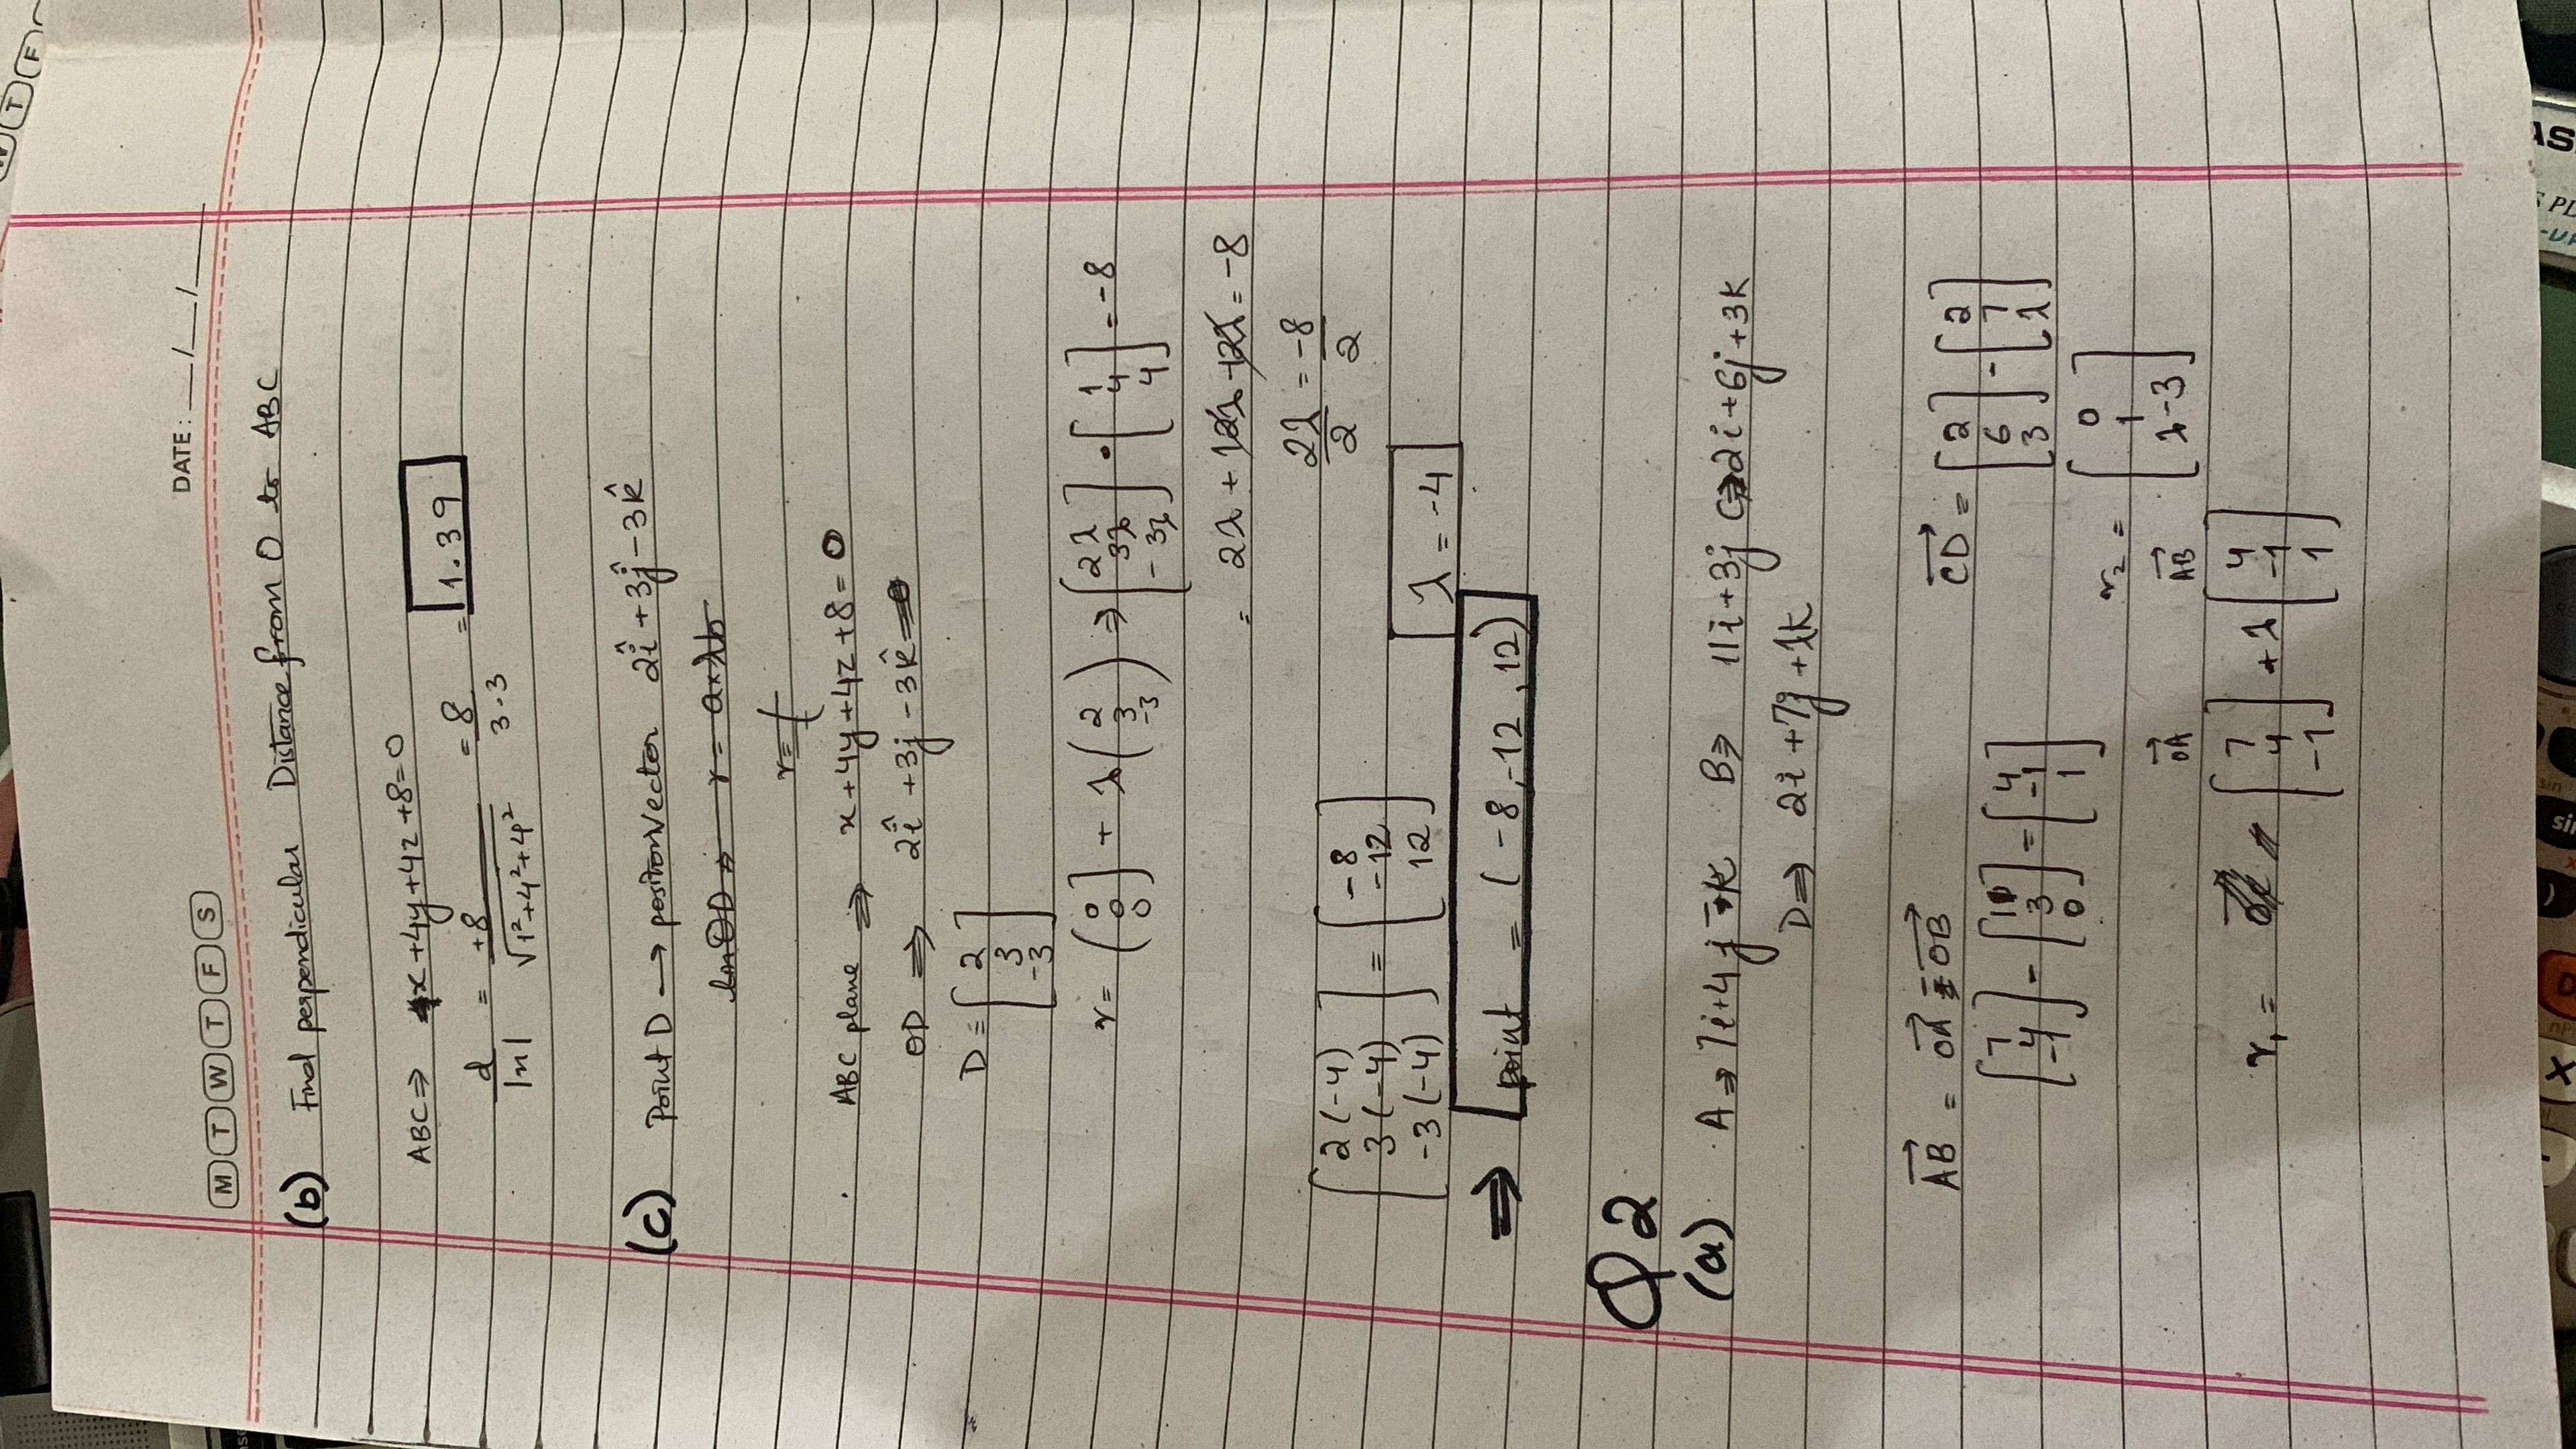 M T W T F S
DATE: __/__/__
(b) Find perpendicular Distance from O to ABC
ABC ⇒ x+4y+4z+8=0
d/|n| = +8/√(1²+4²+4²) = 8/3.3 = 1.39
(c) Point D → position Vector 2î+3ĵ-3k̂
r = a×λb
r=
ABC plane ⇒ x+4y+4z+8=0
OD ⇒ 2î+3j-3k̂
D = [2 3 -3]
r = (0 0 0] + λ(2 3 -3) ⇒ [2λ 3λ -3λ] • [1 4 4] = -8
= 2λ + 12λ - 12λ = -8
2λ/2 = -8/2
[2(-4) 3(-4) -3(-4)] = [-8 -12 12]
λ = -4
⇒ point = (-8,-12,12)
Q2
(a) A ⇒ 7i+4j-k B ⇒ 11i+3j C ⇒ 2i+6j+3k
D ⇒ 2i+7j+λk
AB = OA - OB
CD = [2 6 3] - [2 7 λ]
[7 4 -1] - [11 3 0] = [4 -1 1]
r₂ = [0 1 λ-3]
OA AB
r₁ = [7 4 -1] + λ[4 -1 1]